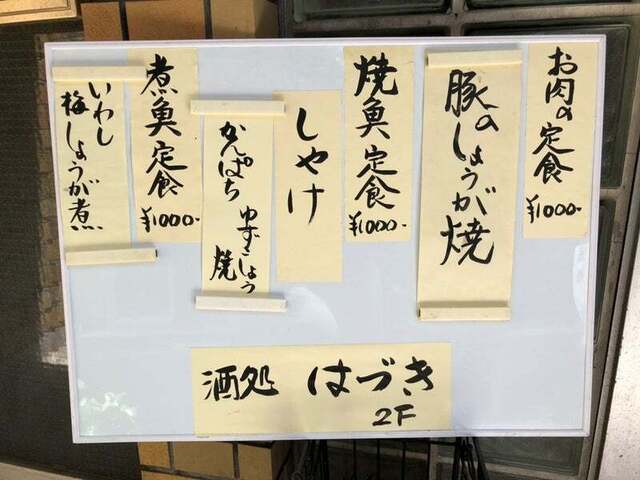 お肉の定食
¥1000-
豚のしょうが焼
焼魚定食
¥1000-
しゃけ
かんぱち
ゆずこしょう
焼
煮魚定食
¥1000-
いわし
梅しょうが煮
酒処 はづき
2F